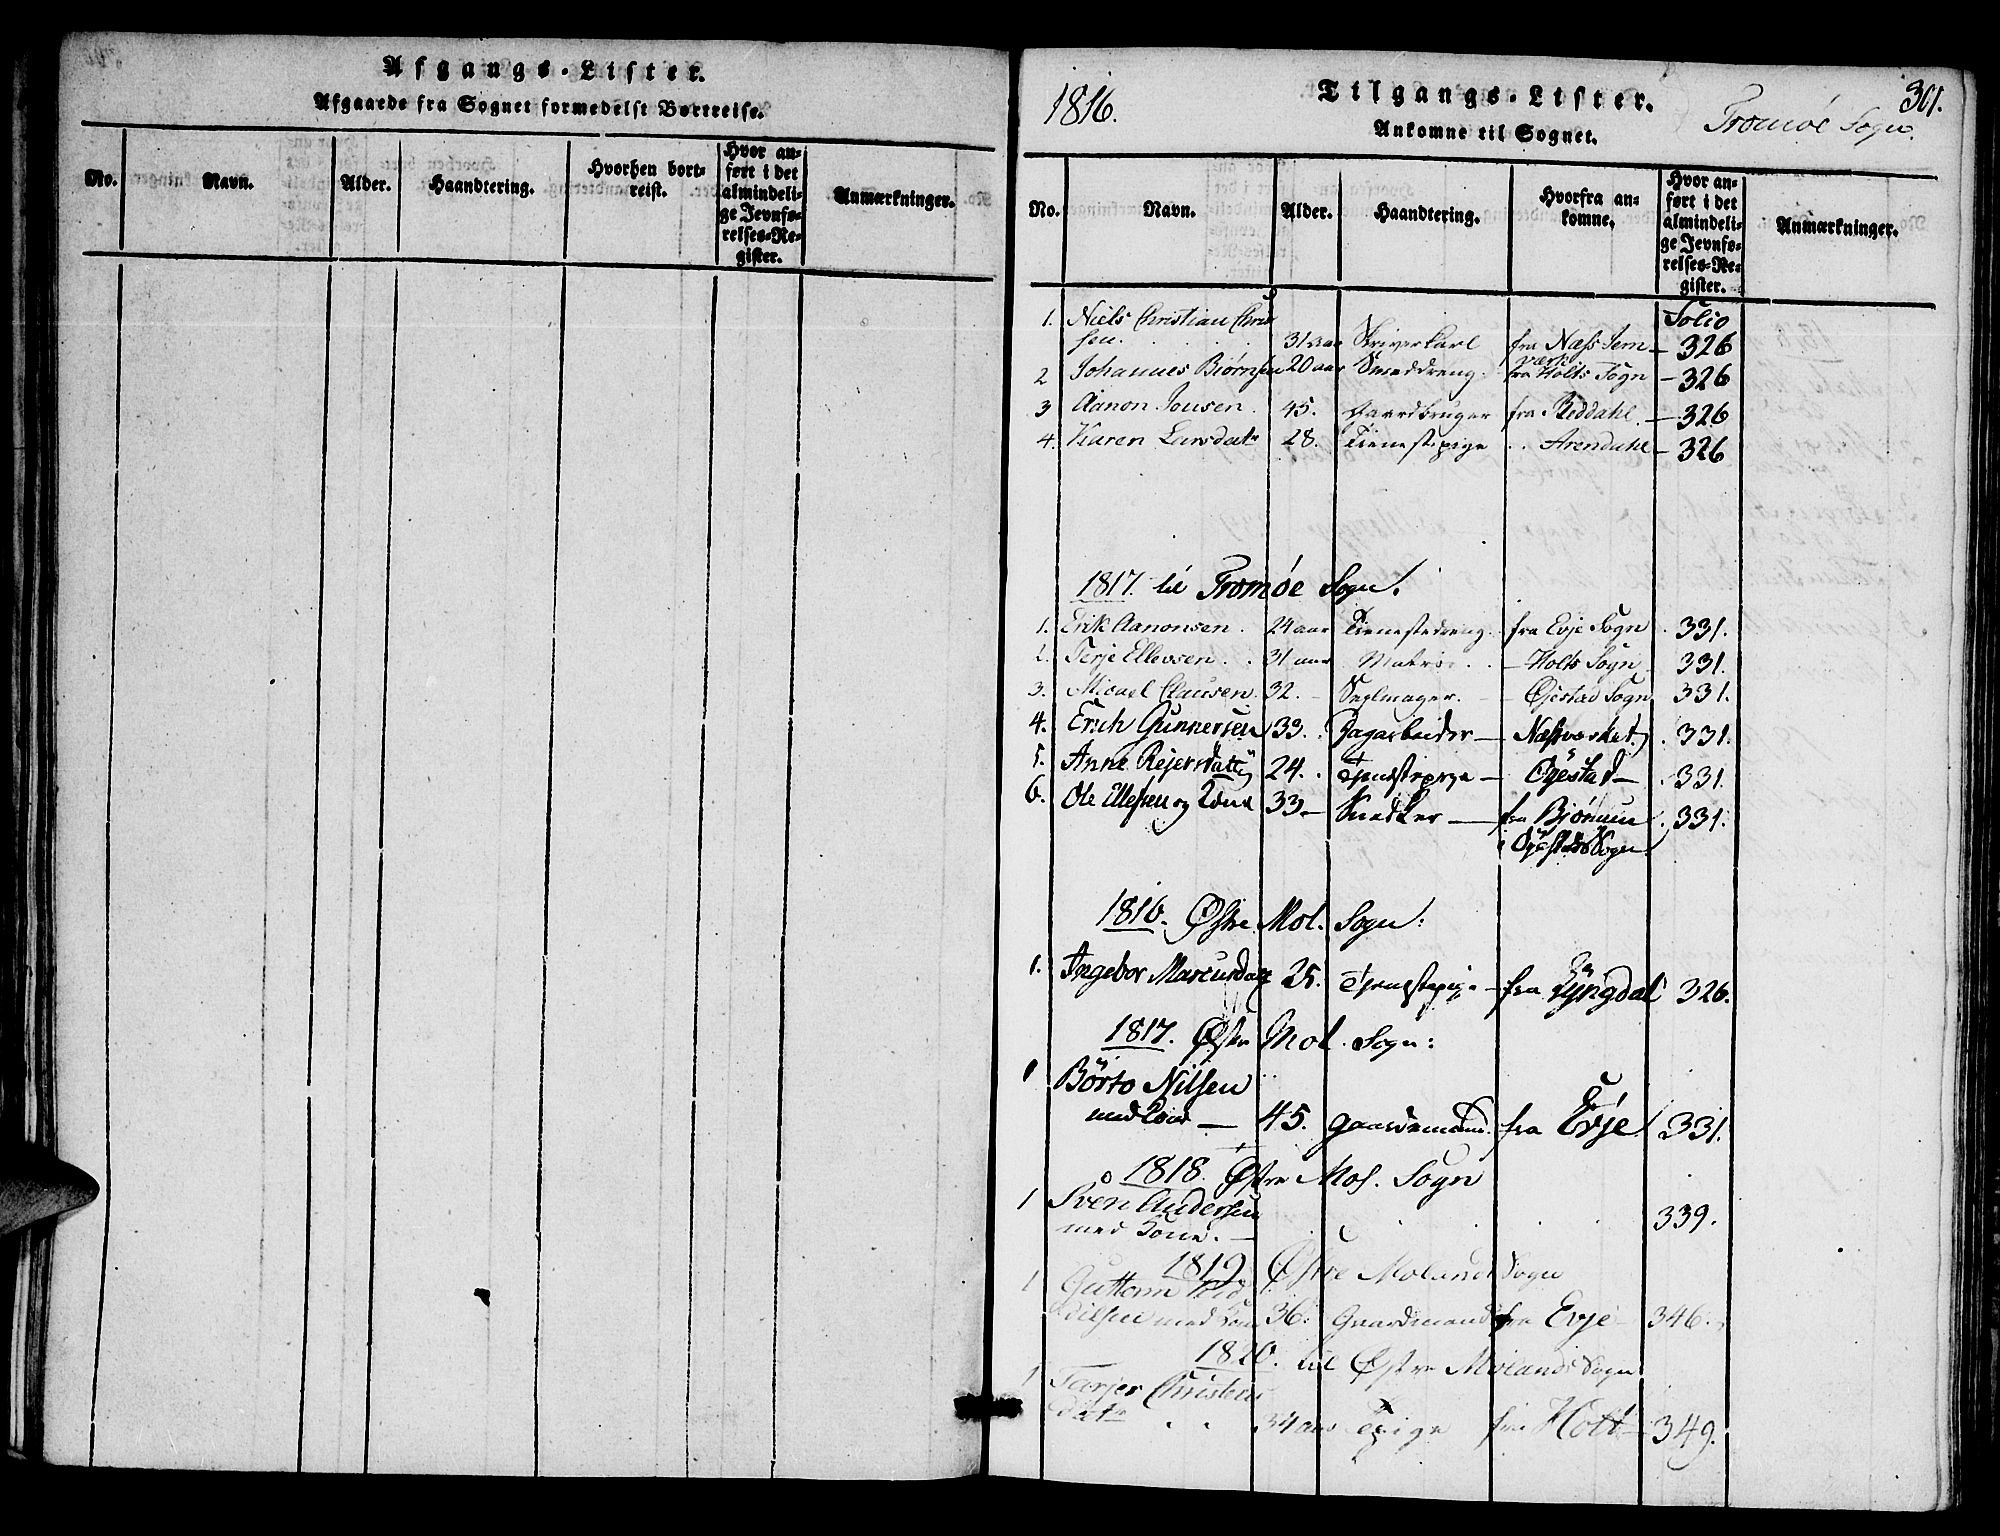 Afgangs-Lister.
Afgaaede fra Sognet formedelst Bortreise.
No. Navn. Alder. Haandtering. Hvorhen bortreist. Hvor anført i det almindelige Jevnførelses-Register. Anmærkninger.
1816. Tilgangs-Lister. 301.
Ankomne til Sognet. Tromøe Sogn.
No. Navn. Alder. Haandtering. Hvorfra ankomne. Hvor anført i det almindelige Jevnførelses-Register. Anmærkninger.
Folio
1. Niels Christian Chri
sen. 31 aar Skriverkarl fra Næss Jern 326
værk
2 Johannes Biørnsen 20 aar Smeddreng fra Holts Sogn 326
3 Aanon Jonsen. 45. Gaardbruger fra Reddahl 326
4. Karen Larsdatr 28. Tienestepige Arendahl 326
1817. til Tromøe Sogn.
1. Erik Aanonsen. 24 aar Tienestedreng fra Evje Sogn 331.
2. Terje Ellevsen. 31 aar Matros Holts Sogn 331.
3. Micael Clausen. 32. Seglmager. Øjestad Sogn 331.
4. Erich Gunnersen 33. Dagarbeider Næsværket 331.
5. Anne Rejersdatt 24. Tjenestepige Øjestad 331.
6. Ole Ellefsen og Kone 33 Snedker fra Bjørnum 331.
i Øjestads Sogn.
1816. Østre Mol. Sogn:
1. Ingebor Marcusdatt 25. Tjenestepige fra Lyngdal 326.
1817. Østre Mol. Sogn:
1 Børto Nilsen
med Kone 45. Gaardemand. fra Evje 331.
1818. Østre Mol. Sogn
1 Sven Andersen 339.
med Kone.
1819. Østre Molands Sogn
1 Guttorm
med Kone 36. Gaardmand fra Evje 346.
1820. til Østre Molands Sogn
1 Tarjer Christens
datr 34 aar Tpige fra Holt 349.